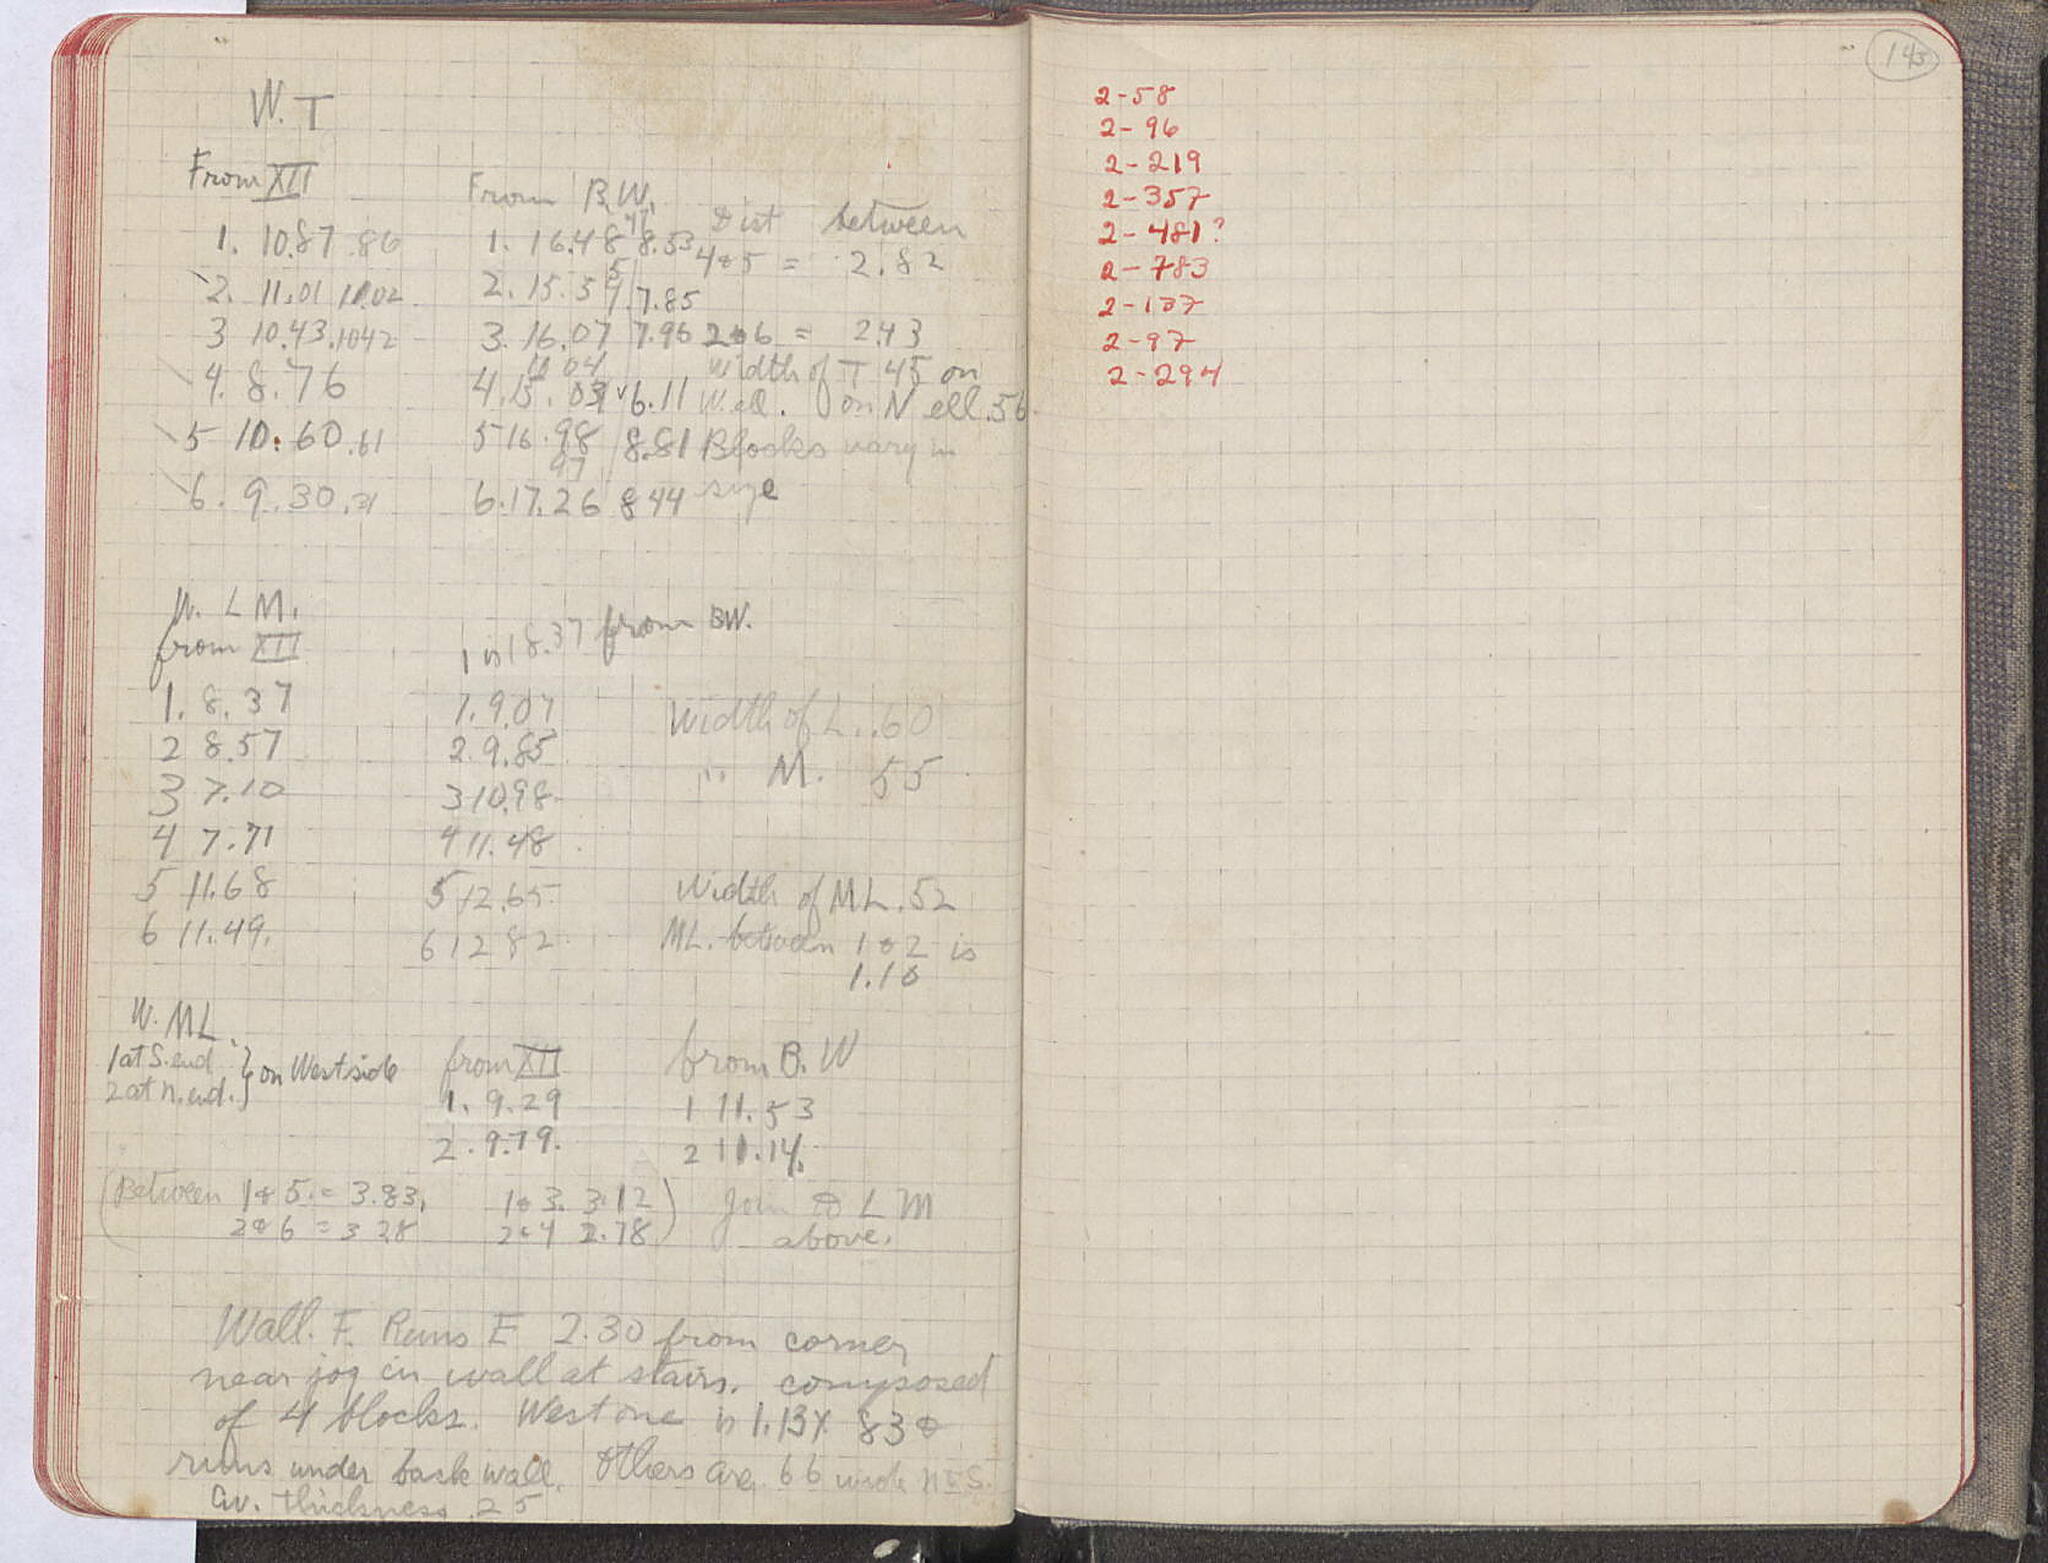 W. T
From XII
1. 10.87 .86
2. 11.01 11.02
3 10.43.1042
4. 8.76
5 10.60.61
6. 9.30.31
From B.W.
47
1. 16.48 8.53
2. 15.5 7.85
3. 16.07 7.96
4. 15. 6.11
5 16.98 8.81
97
6. 17.26 8 44
Dist between
4 & 5 = 2.82
2 & 6 = 2.43
Width of T 45 on
W ell. on N ell .56
Blocks vary in
size
W. L M.
from XII
1 is 18.37 from BW.
1. 8.37
2 8.57
3 7.10
4 7.71
5 11.68
6 11.49.
1. 9.07
2. 9.85
3 10.98
4 11.48
5 12.65
6 12 82
Width of L. .60
" M. 55
Width of ML .52
ML. between 1 & 2 is
1.10
W. ML.
1 at S. end
2 at N. end. } on West side
from XII
1. 9.29
2. 9.79.
from B. W
1 11.53
2 11.14
(Between 1 & 5 = 3.83, 1 & 3. 3.12
2 & 6 = 3 28 2 & 4 2.78)
Join to L M
above.
Wall. F. Runs E 2.30 from corner
near jog in wall at stairs. composed
of 4 blocks. West one is 1.13 X 83 &
runs under back wall. Others are 66 wide N & S.
av. thickness .25
143
2-58
2-96
2-219
2-357
2-481?
2-783
2-137
2-97
2-294